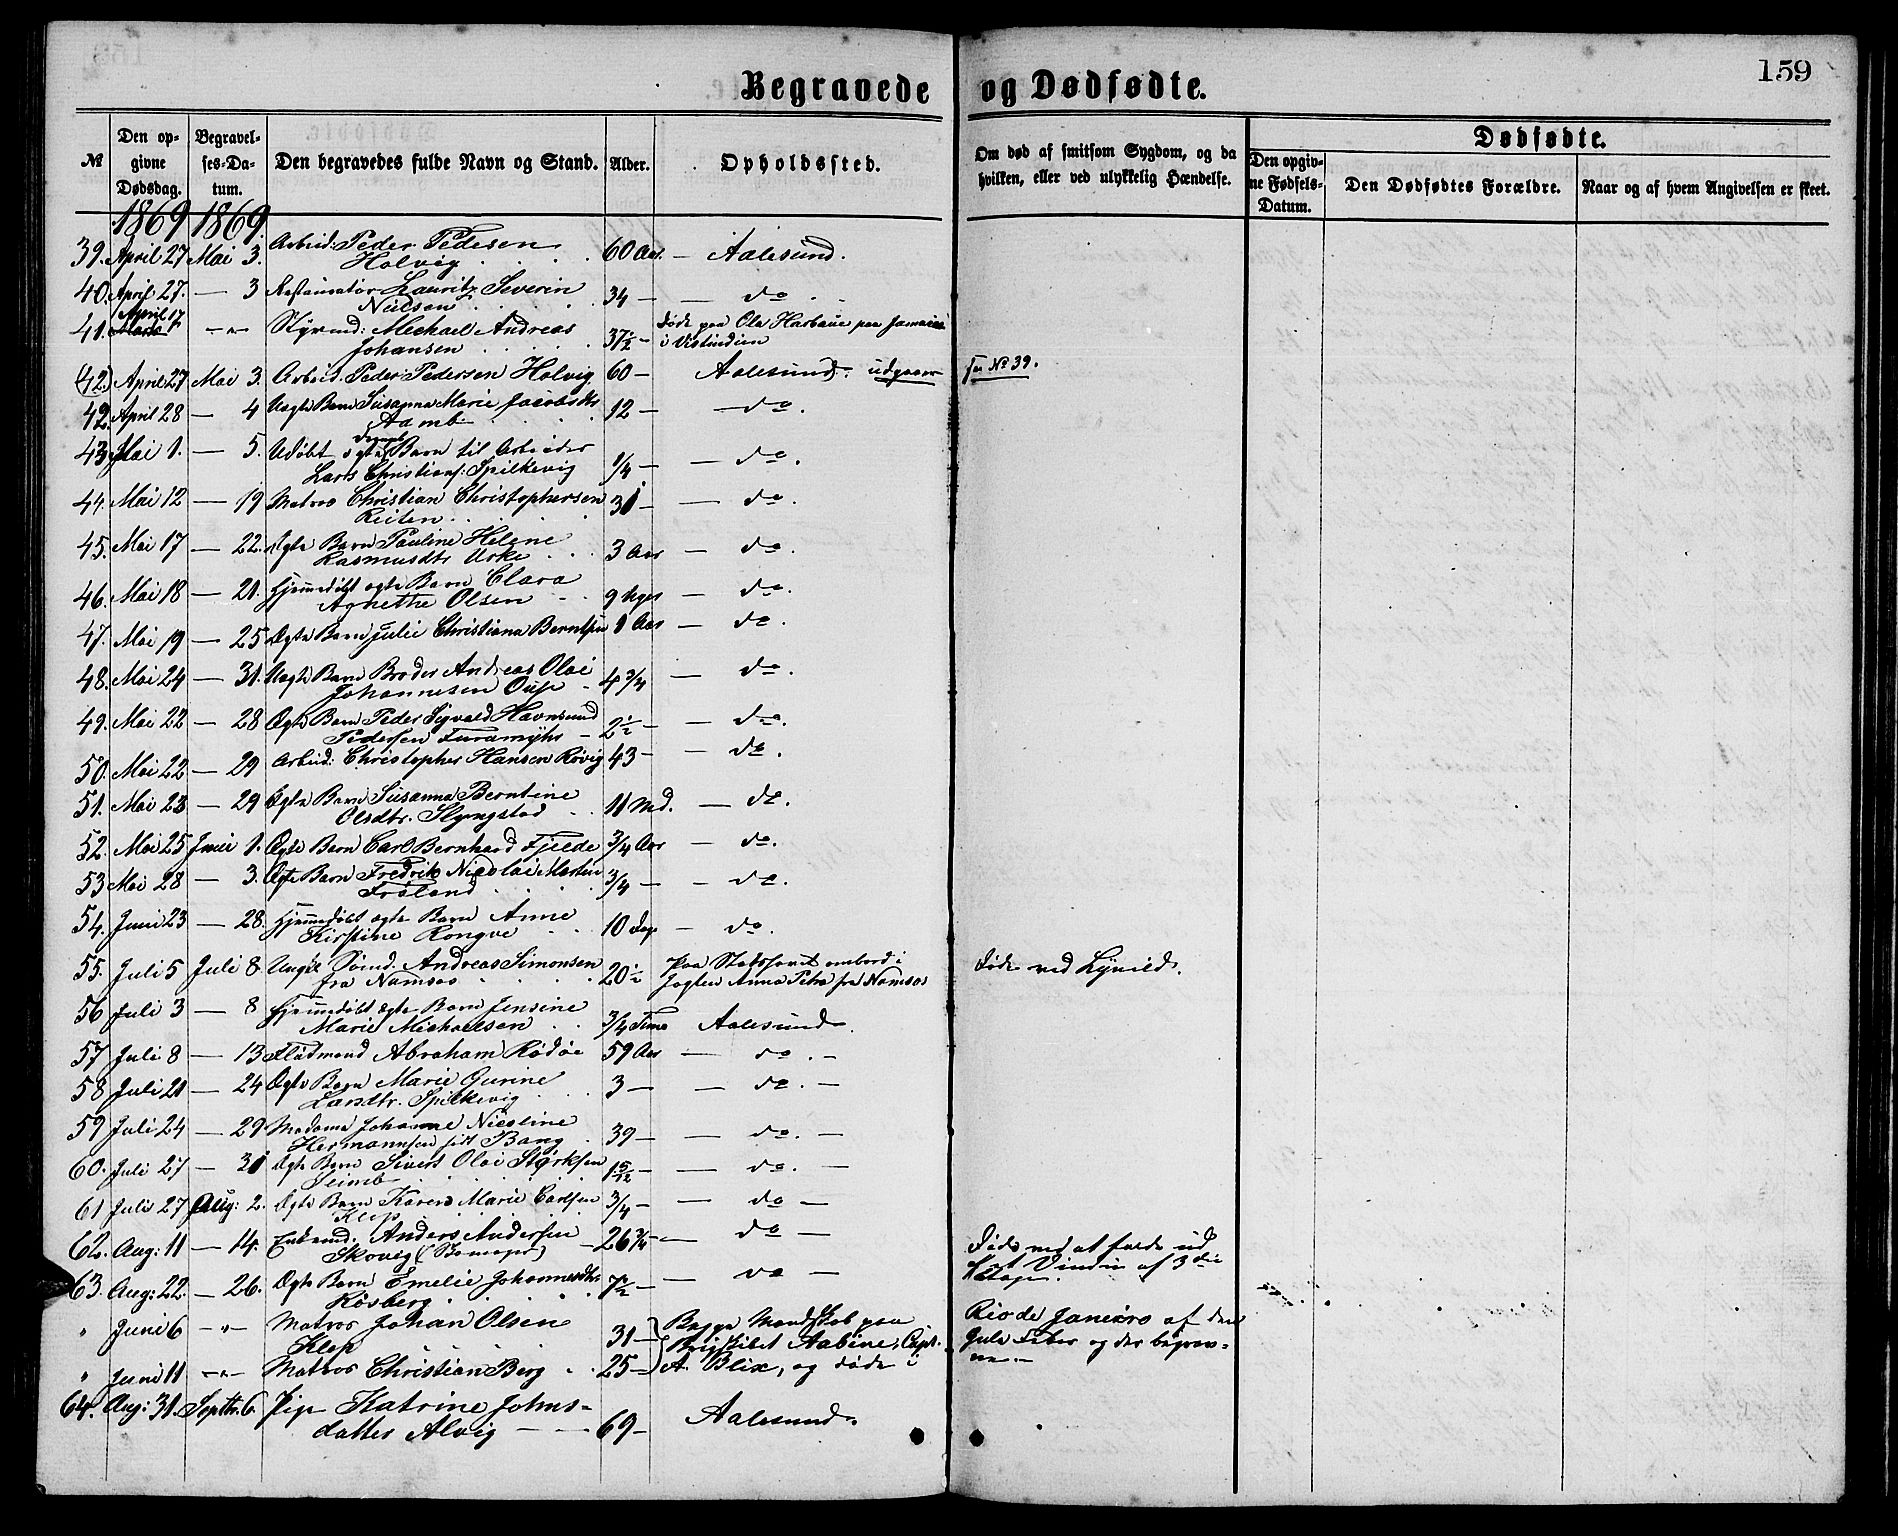 159
Begravede og Dødfødte.
№
Den op-
givne
Dødsdag.
Begravel-
ses-Da-
tum.
Den begravedes fulde Navn og Stand.
Alder.
Opholdssted.
Om død af smitsom Sygdom, og da
hvilken, eller ved ulykkelig Hændelse.
Dødfødte.
Den opgiv-
ne Fødsels-
Datum.
Den Dødfødtes Forældre.
Naar og af hvem Angivelsen er skeet.
1869 1869.
39. April 27 Mai 3. Arbeid: Peder Pedesen 60 Aar. — Aalesund.
Holvig
40. April 27. — 3 Restauratør Lauritz Severin 34 — — do
Nielsen
41. April 17 — " — Styrmd: Michael Andreas 37½ — Døde paa Ole Harbaue paa Jamaica
Johansen i Vestindien
(42.) April 27 Mai 3. Arbeid. Peder Pedersen Holvig 60 — Aalesund. udgaaer see No 39.
42. April 28 — 4 Uægte Barn Susanna Marie Jacobsdtr 12 — — do.
Aamb
43. Mai 1. — 5. Udøbt ægte Barn til Arbeider ¼ — — do.
Lars Christians: Spilkevig
44. Mai 12 — 19 Matros Christian Christophersen 31 — — do.
Reiten
45. Mai 17 — 22. Ægte Barn Pauline Helene 3 Aar — do.
Rasmusdtr Urke
46. Mai 18 — 21. Hjemmedøbt ægte Barn Clara 9 Uger — do.
Agnethe Olsen
47. Mai 19 — 25 Ægte Barn Julie Christiana Berntsen 1 Aar — do.
48. Mai 24 — 31. Uægte Barn Broder Andreas Olai 4 ¾ — do.
Johannesen
49. Mai 22 — 28 Ægte Barn Peder Sigvald Havnsund 2½ — — do.
Pedersen Furamyhr
50. Mai 22 — 29 Arbeid: Christopher Hansen Røvig 43 — — do.
51. Mai 23 — 29 Ægte Barn Susanna Berntine 11 Md. — do.
Olsdtr. Slyngstad
52. Mai 25 Juni 1. Ægte Barn Carl Bernhard Fjelde ¾ Aar — do.
53 Mai 28 — 3. Ægte Barn Fredrik Nicolai Martin ¾ — — do.
Frøland
54. Juni 23 — 28. Hjemmedøbt ægte Barn Anne 10 Dage — do.
Kirstine Rongve
55. Juli 5 Juli 8. Ungkl Sømd. Andreas Simonsen 20½ Paa ombord i Døde ved
fra Namsos Jagten Anna Petra fra Namsos
56 Juli 3 — 8 Hjemmedøbt ægte Barn Jensine ¾ Time Aalesund.
Marie Michaelsen
57 Juli 8 — 13 Flødmand Abraham Rødøe 59 Aar — do. —
58 Juli 21 — 24 Ægte Barn Marie Gurine 3 — — do. —
Larsdtr. Spilkevig
59 Juli 24 — 29 Madame Johanne Nicoline 39 — — do. —
Hermannsen født Bang
60. Juli 27 — 31 Ægte Barn Sivert Olai Størksen 1 5/12 — — do. —
61 Juli 27 Aug: 2. Ægte Barn Karen Marie Carlsen ¾ — — do —
Klep
62. Aug: 11 — 14. Enkemd. Anders Andersen 26 ¾ — — do — Døde ved at falde ud
Skovig af Vindu af 3die
Etage.
63. Aug: 22. — 26. Ægte Barn Emelie Johannesdtr 7½ — — do —
Røsberg
" Juni 6 — " — Matros Johan Olsen 31 — Begge Mandskab paa Rio de Janeiro af den
Klep Brigskibet Sabine, Capt. gule Feber og der begrav-
" Juni 11 — " — Matros Christian Berg 25 — A. Blix, og døde i ne. —
64. Aug: 31. Septbr. 6. Pige Katrine Johns- 69 — Aalesund.
datter Alvig